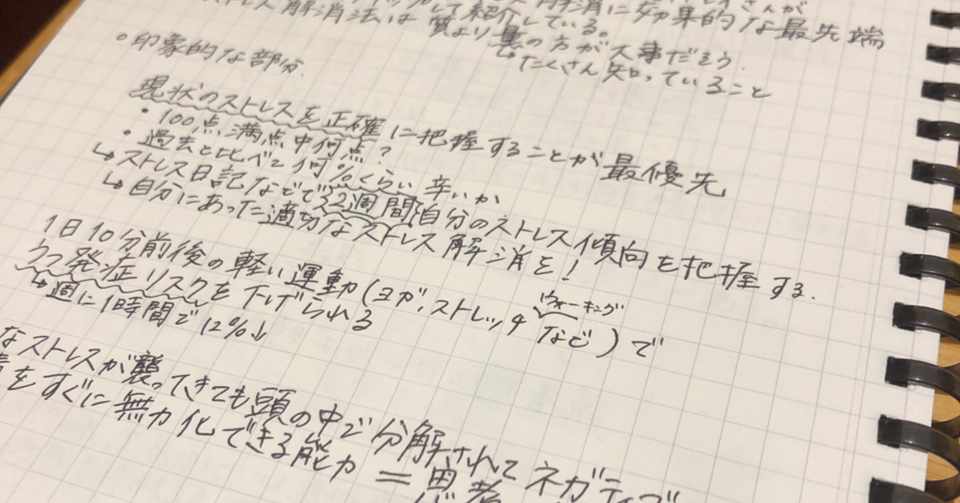 解消に効果的な最先端
ストレス解消法は　して紹介している。
質より量の方が大事だそう
↳たくさん知っていること
○印象的な部分
現状のストレスを正確に把握することが最優先
・100点満点中何点？
・過去と比べて何%くらい辛いか
↳ストレス日記などで2週間自分のストレス傾向を把握する.
↳自分にあった適切なストレス解消を!
1日10分前後の軽い運動(ヨガ,ストレッチ ウォーキング など)で
うつ発症リスクを下げられる
↳週に1時間で12%↓
なストレスが襲ってきても頭の中で分解されてネガティブ
をすぐに無力化できる能力 = 思考